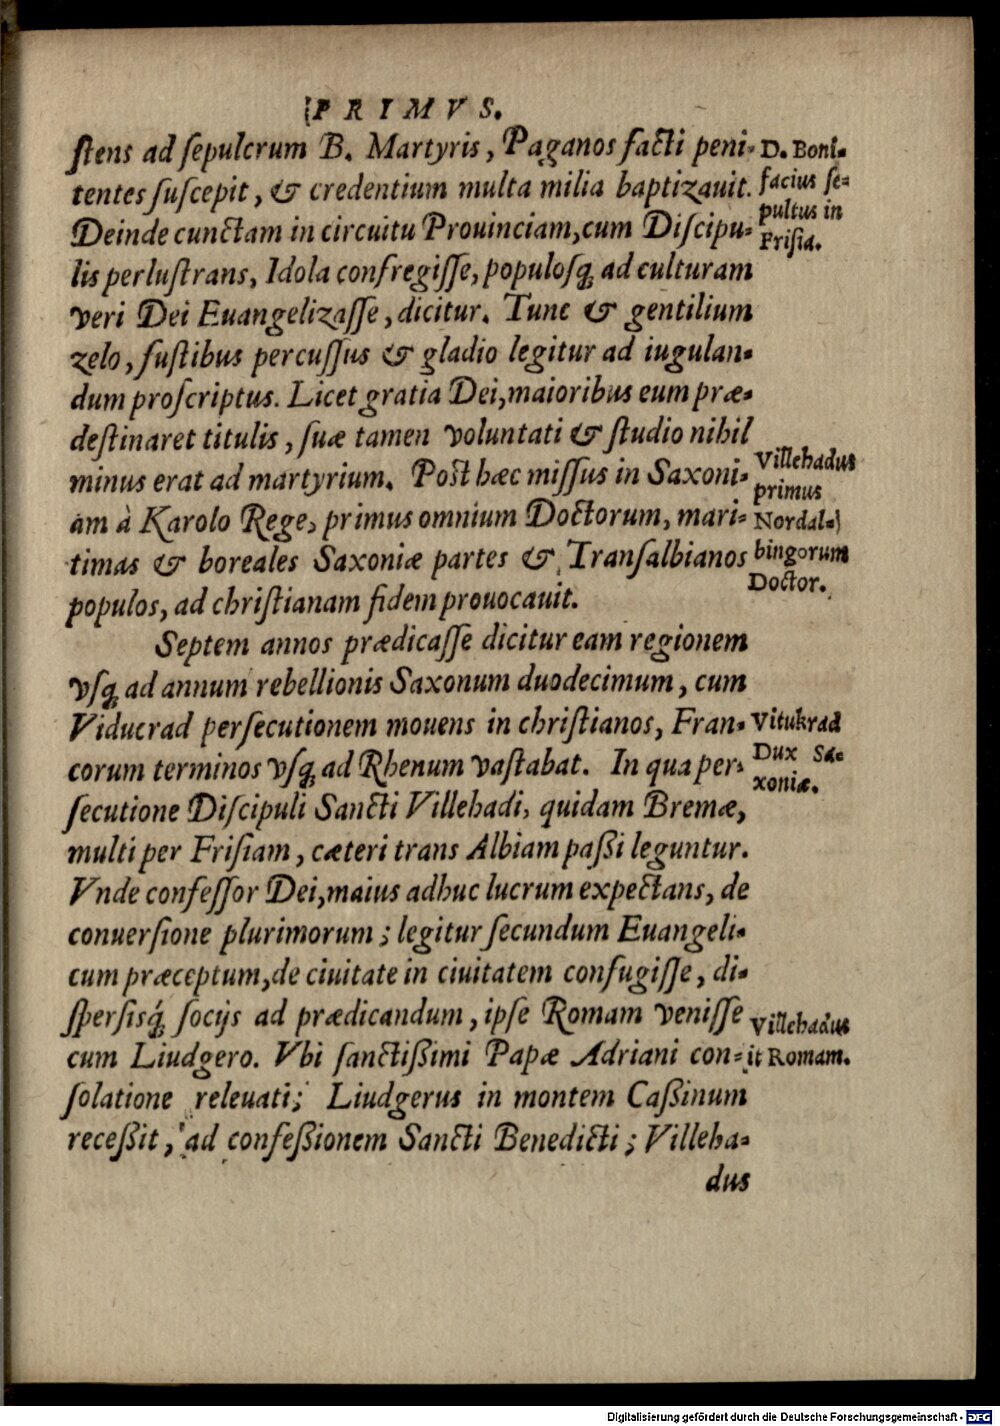 PRIMVS.
ſtens ad ſepulcrum B. Martyris, Paganos facti peni-
tentes ſuſcepit, & credentium multa milia baptizauit.
Deinde cunctam in circuitu Prouinciam, cum Diſcipu-
lis perluſtrans, Idola confregiſſe, populoſq́; ad culturam
veri Dei Euangelizaſſe, dicitur. Tunc & gentilium
zelo, fuſtibus percuſſus & gladio legitur ad iugulan-
dum proſcriptus. Licet gratia Dei, maioribus eum præ-
deſtinaret titulis, ſuæ tamen voluntati & ſtudio nihil
minus erat ad martyrium. Post hæc miſſus in Saxoni-
am à Karolo Rege, primus omnium Doctorum, mari-
timas & boreales Saxoniæ partes & Tranſalbianos
populos, ad chriſtianam fidem prouocauit.
Septem annos prædicaſſe dicitur eam regionem
vſq; ad annum rebellionis Saxonum duodecimum, cum
Viducrad perſecutionem mouens in chriſtianos, Fran-
corum terminos vſq; ad Rhenum vaſtabat. In qua per-
ſecutione Diſcipuli Sancti Villehadi, quidam Bremæ,
multi per Friſiam, cæteri trans Albiam paßi leguntur.
Vnde confeſſor Dei, maius adhuc lucrum expectans, de
conuerſione plurimorum; legitur ſecundum Euangeli-
cum præceptum, de ciuitate in ciuitatem confugiſſe, di-
ſperſisq́; ſocijs ad prædicandum, ipſe Romam veniſſe
cum Liudgero. Vbi ſanctißimi Papæ Adriani con-
ſolatione releuati; Liudgerus in montem Caßinum
receßit, ad confeßionem Sancti Benedicti; Villeha-
dus
D. Boni-
facius ſe-
pultus in
Friſia.
Villehadus
primus
Nordal-
bingorum
Doctor.
Vitukrad
Dux Sa-
xoniæ.
Villehadus
it Romam.
Digitalisierung gefördert durch die Deutsche Forschungsgemeinschaft - DFG